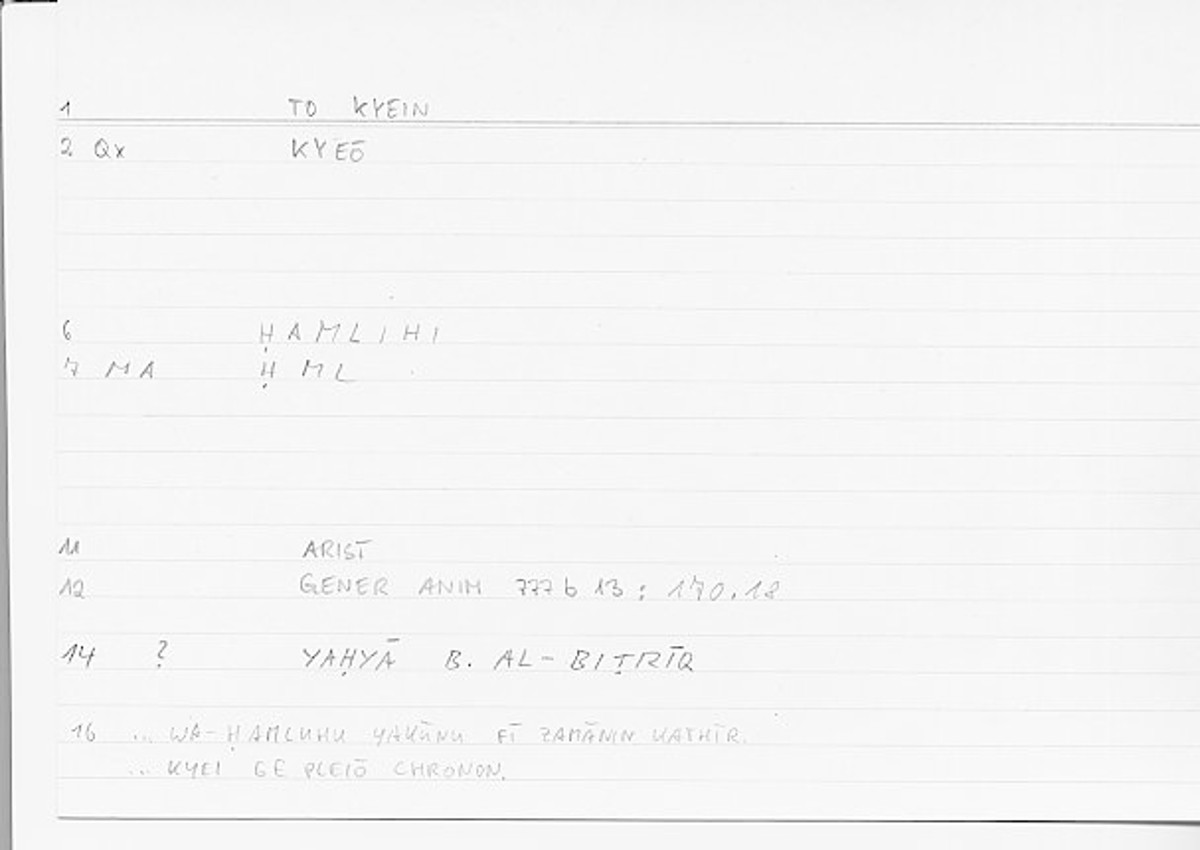 1 TO KYEIN
2 Qx KYEŌ
6 ḤAMLIHI
7 MA ḤML
11 ARIST
12 GENER ANIM 777 b 13 : 170.18
14 ? YAḤYĀ B. AL-BIṬRĪQ
16 ... WA-ḤAMLUHU YAKŪNU FĪ ZAMĀNIN KATHĪR.
... KYEI GE PLEIŌ CHRONON.